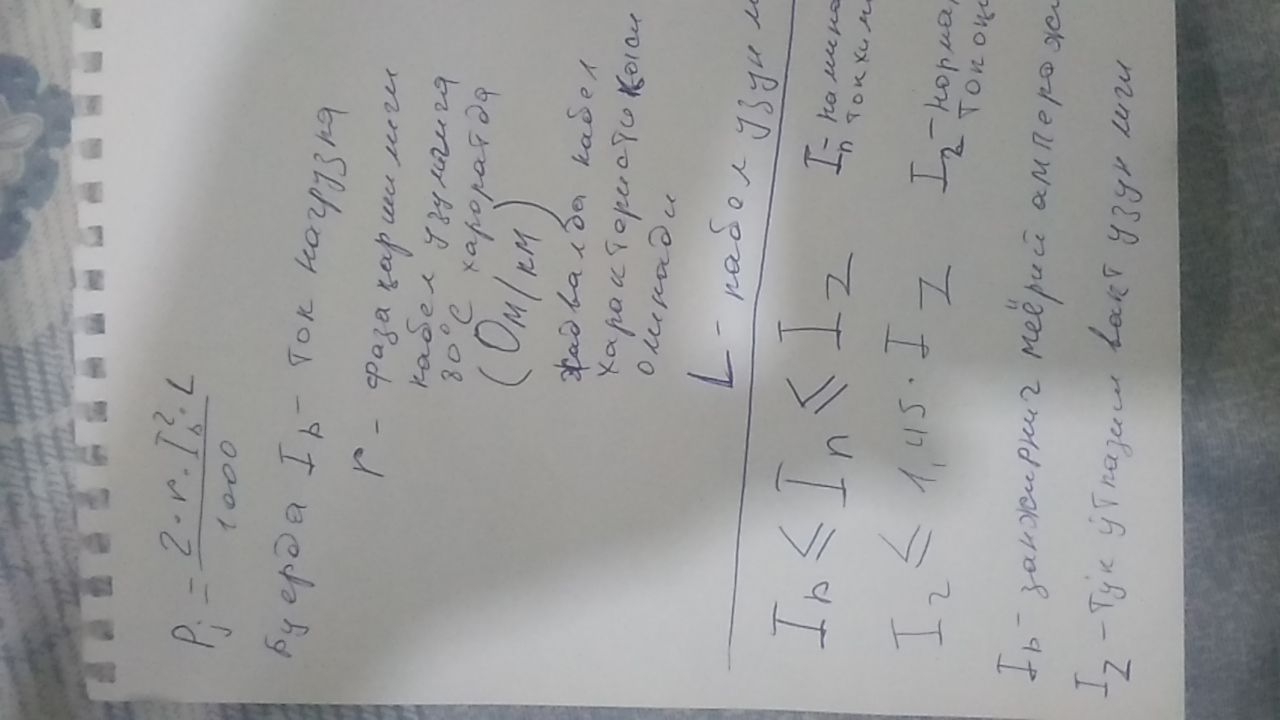 Pj = 2·r·Ib²·L / 1000
Буерда Ib - ток нагрузка
r - фаза қаршилиги
кабел узунлига
80°С хароратда
(Ом/км)
жадвалда кабел
характеристикаси
олинади
L - кабел узун
Ib ≤ In ≤ Iz In -
I2 ≤ 1,45 · Iz I2 -
Ib - занжирниг меёрий
Iz - тўк ўтказиш вакт узун лиги